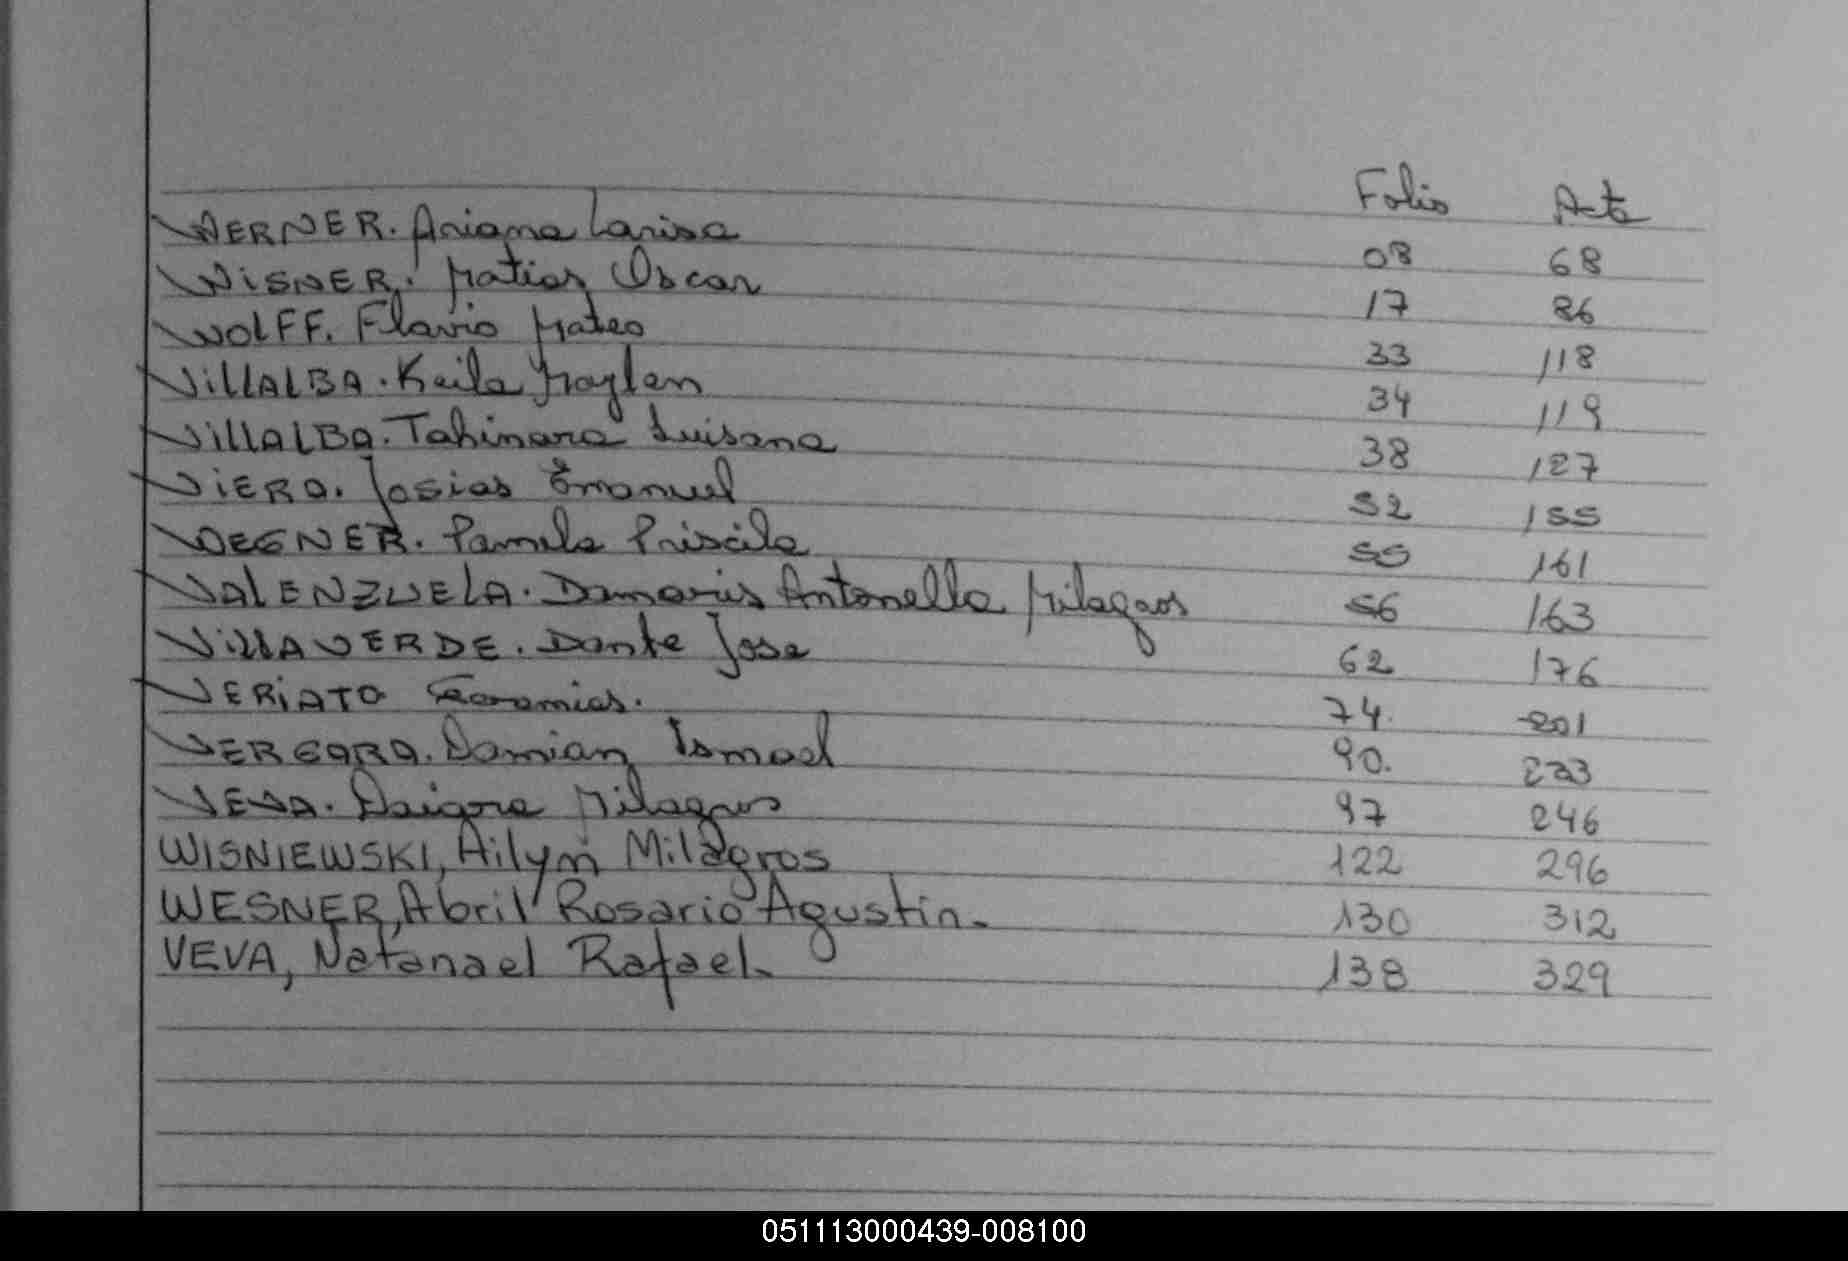 Folio Acta
WERNER. Ariana Larisa 08 68
WiSNER. Matias Oscar 17 86
WOLFF. Flavio Mateo 33 118
ViLLALBA. Keila Maylen 34 119
ViLLALBA. Tahinara Luisana 38 127
ViERA. Josias Emanuel 52 155
WEGNER. Pamela Priscila 55 161
VALENZUELA. Damaris Antonella Milagros 56 163
ViLLAVERDE. Dante Jose 62 176
VERiATO 74. 201
VERGARA. Damian Ismael 90. 233
Milagros 97 246
WISNIEWSKI, Ailyn Milagros 122 296
WESNER, Abril Rosario Agustin. 130 312
VEVA, Natanael Rafael. 138 329
051113000439-008100